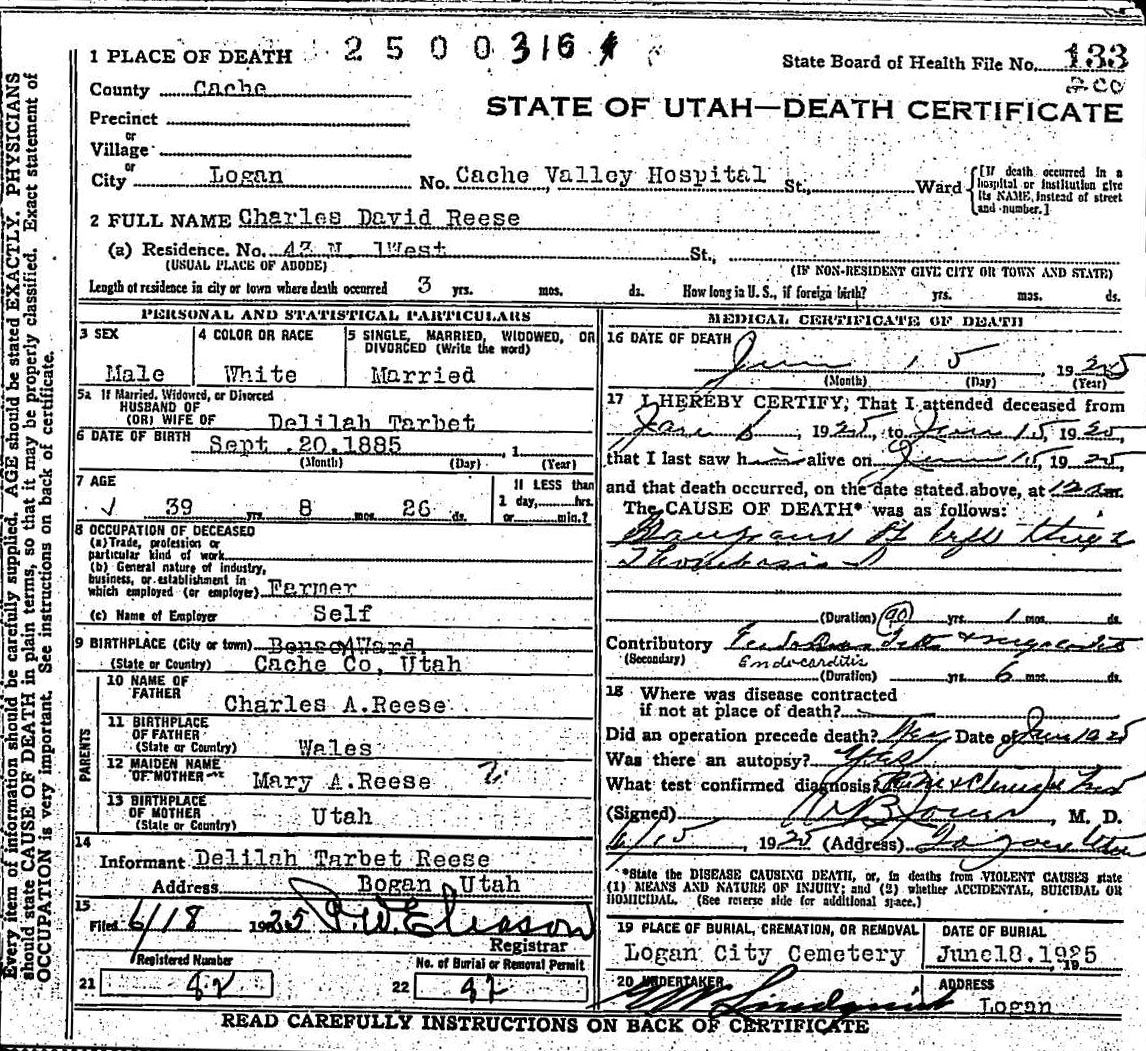 1 PLACE OF DEATH 2 5 0 0 316
State Board of Health File No. 133
County Cache
STATE OF UTAH—DEATH CERTIFICATE
Precinct
or
Village
or
City Logan No. Cache Valley Hospital St., Ward
[If death occurred in a hospital or institution give its NAME, instead of street and number.]
2 FULL NAME Charles David Reese
(a) Residence. No. 43 N. 1West St.,
(USUAL PLACE OF ABODE) (IF NON-RESIDENT GIVE CITY OR TOWN AND STATE)
Length of residence in city or town where death occurred 3 yrs. mos. ds. How long in U. S., if foreign birth? yrs. mos. ds.
PERSONAL AND STATISTICAL PARTICULARS
3 SEX
Male
4 COLOR OR RACE
White
5 SINGLE, MARRIED, WIDOWED, OR
DIVORCED (Write the word)
Married
5a If Married, Widowed, or Divorced
HUSBAND OF
(OR) WIFE OF Delilah Tarbet
6 DATE OF BIRTH Sept .20.1885 , 1
(Month) (Day) (Year)
7 AGE
39 yrs. 8 mos. 26 ds.
If LESS than
1 day, hrs.
or min.?
8 OCCUPATION OF DECEASED
(a) Trade, profession or
particular kind of work
(b) General nature of industry,
business, or establishment in
which employed (or employer) Farmer
(c) Name of Employer Self
9 BIRTHPLACE (City or town) Benson Ward.
(State or Country) Cache Co, Utah
PARENTS
10 NAME OF
FATHER
Charles A.Reese
11 BIRTHPLACE
OF FATHER
(State or Country) Wales
12 MAIDEN NAME
OF MOTHER Mary A.Reese ?
13 BIRTHPLACE
OF MOTHER
(State or Country) Utah
14
Informant Delilah Tarbet Reese
Address Bogan Utah
15
Filed 6/18 1925 P.W.Eliason
Registrar
Registered Number
21 92
No. of Burial or Removal Permit
22 92
MEDICAL CERTIFICATE OF DEATH
16 DATE OF DEATH
June 15 1925
(Month) (Day) (Year)
17 I HEREBY CERTIFY, That I attended deceased from
6, 1925, to June 15, 1925,
that I last saw him alive on June 15, 1925,
and that death occurred, on the date stated above, at 12 am
The CAUSE OF DEATH* was as follows:
Thrombosis
(Duration) yrs. 1 mos. ds.
Contributory
(Secondary) Endocarditis
(Duration) yrs. 6 mos. ds.
18 Where was disease contracted
if not at place of death?
Did an operation precede death? Yes Date of June 1925
Was there an autopsy? Yes
What test confirmed diagnosis?
(Signed) , M. D.
6/15, 1925 (Address)
*State the DISEASE CAUSING DEATH, or, in deaths from VIOLENT CAUSES state
(1) MEANS AND NATURE OF INJURY; and (2) whether ACCIDENTAL, SUICIDAL OR
HOMICIDAL. (See reverse side for additional space.)
19 PLACE OF BURIAL, CREMATION, OR REMOVAL
Logan City Cemetery
DATE OF BURIAL
June18.1925
20 UNDERTAKER
Lindquist
ADDRESS
Logan
READ CAREFULLY INSTRUCTIONS ON BACK OF CERTIFICATE
Every item of information should be carefully supplied. AGE should be stated EXACTLY. PHYSICIANS
should state CAUSE OF DEATH in plain terms, so that it may be properly classified. Exact statement of
OCCUPATION is very important. See instructions on back of certificate.